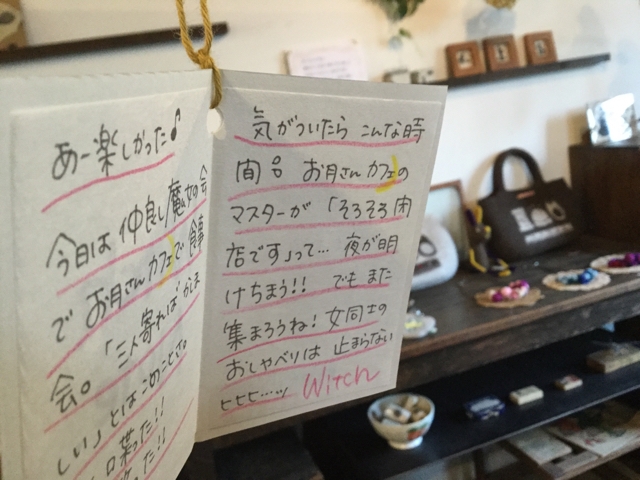 あー楽しかった♪
今日は仲良し魔女の会
で お月さんカフェで食事
会。「三人寄れば かしま
しい」とは このことさ。
気がついたら こんな時
間。お月さんカフェの
マスターが「そろそろ閉
店です」って… 夜が明
けちまう!! でも また
集まろうね! 女同士の
おしゃべりは 止まらない
ヒヒヒ…ッ Witch